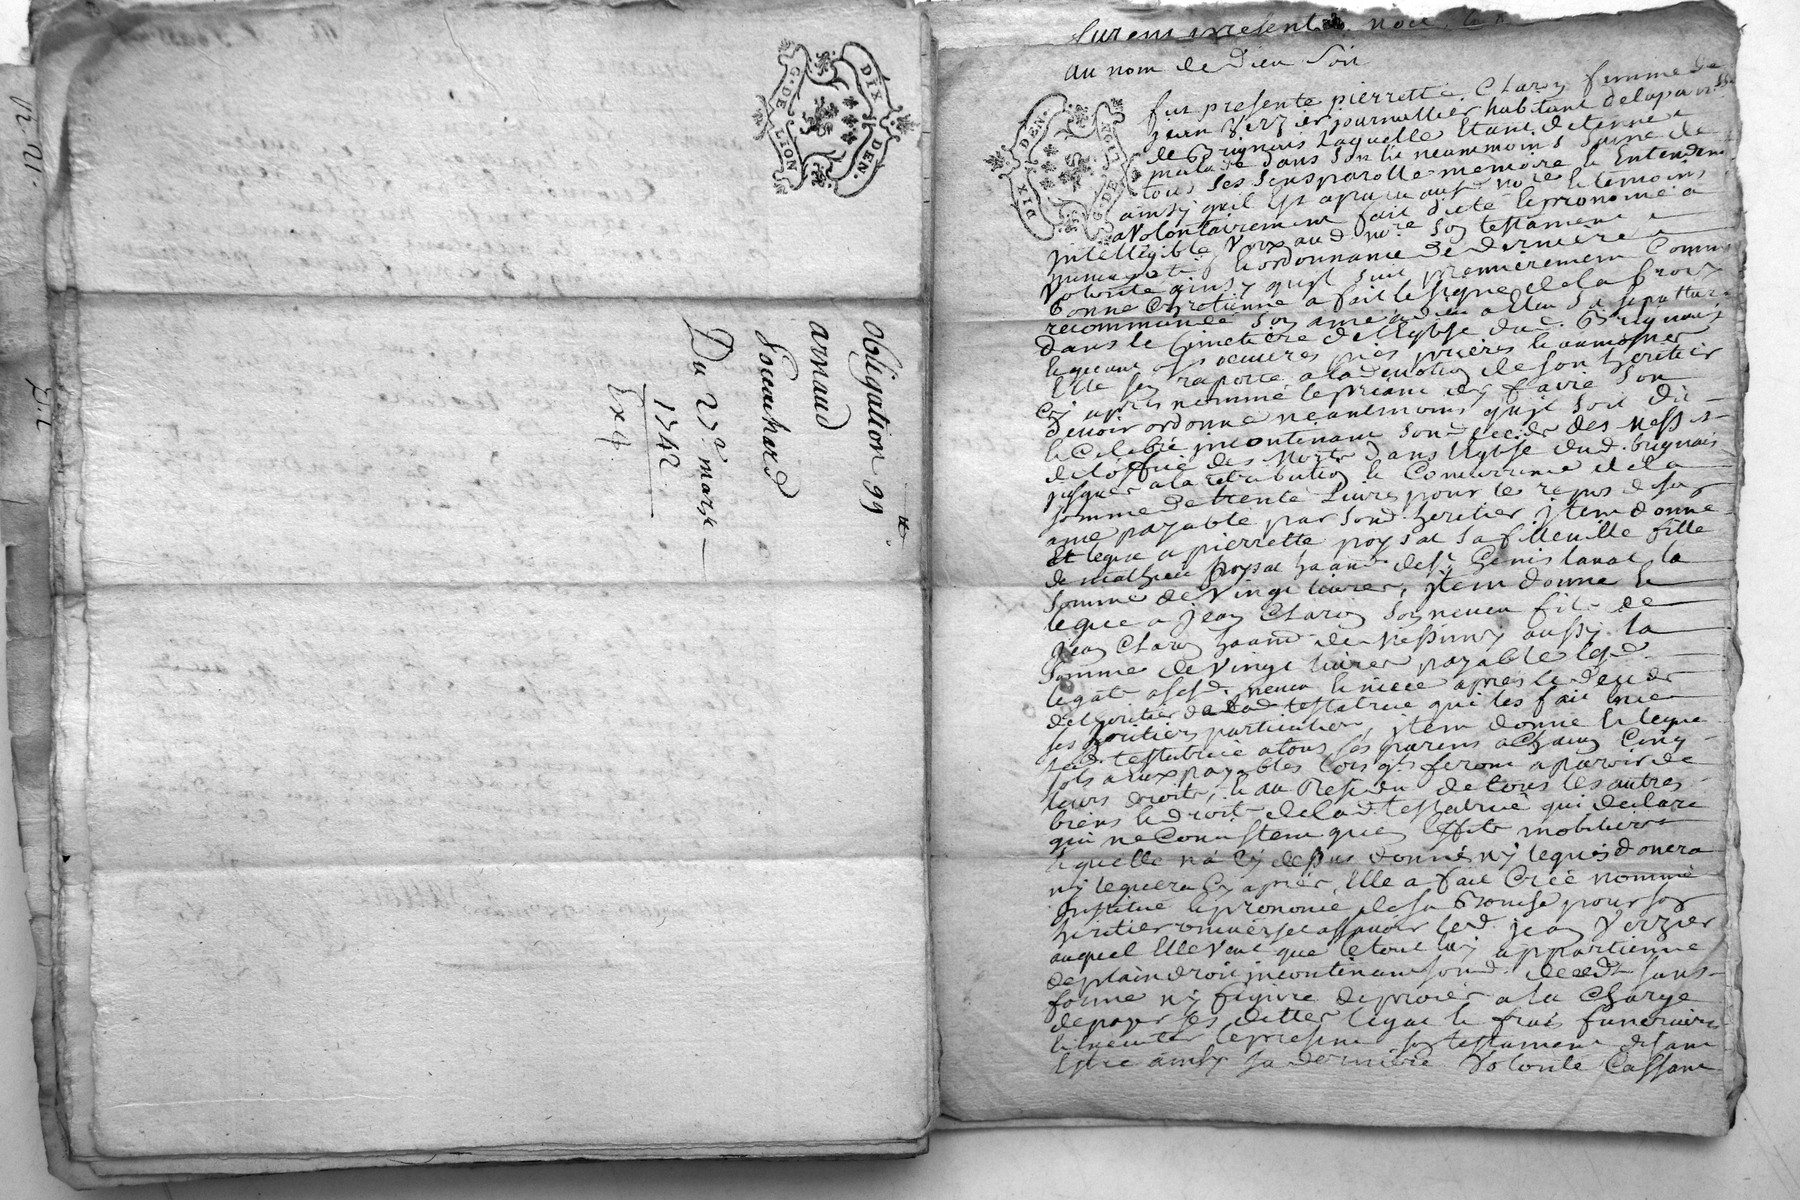 G. DE LYON
DIX DEN.
obligation 99 lt.
arnaud
Souchard
Du 27e mars
1742
Ex 4.
au nom de Dieu soit
DIX DEN.
G. DE LYON
fut presente pierrette Claron femme de
jean Verzier journallier habitant de la parroisse
de Brignais laquelle Etant detenue
malade dans son lit neammoins saine de
tous ses sens parolle memoire et Entendem
ainsy qu'il Est aparu aud nore et temoins
a volontairement fait dicté et prononcé a
intelligible voix aud nore son testament
nuncupatif et ordonnance de derniere
volonté ainsy qu'il suit premierement comme
bonne Chretienne a fait le signe de la Croix
recommandé son ame a Dieu Elu sa sepulture
dans le Cemetiere de l'Eglise dud. Brignais
et quant a ses oeuvres pies prieres et aumosnes
Elle s'en raporte a la devotion de son heritier
Cy apres nommé le priant d'en faire son
devoir ordonne neantmoins qu'il soit dit
et Celebré incontinant son deces des messes
de l'office des morts dans l'Eglise dud. brignais
jusques a la retribution et Concurrence de la
somme de trente Livres pour le repos de son
ame payable par sond. heritier, jtem donne
Et legue a pierrette poyzat sa filleulle fille
de mathieu poyzat haant de st Genis laval la
somme de vingt livres, jtem donne et
legue a jean Claron son neveu fils de
jean Claron haant de Messimy aussy la
somme de vingt livres payable lesd.
legats a sesd. neveu et niece apres le deces
de l'heritier de lad testatrice qui les fait
ses heritiers particuliers, jtem donne et legue
lad. testatrice a tous ses parens a Chacun Cinq
sols a eux payables lors qls feront aparoir de
leurs droits, et au Residu de tous les autres
biens et droits de lad. testatrice qui declare
qui ne Consistent que en Effets mobiliers
et quelle n'a Cy dessus donné ny legués donera
ny leguera Cy apres, Elle a fait Créé nommé
Institué et prononcé de sa Bouche pour son
heritier universel assavoir led. jean Verzier
auquel Elle veut que le tout luy appartienne
de plain droit incontinant sond. deced sans
forme ny figure de procès a la Charge
de payer ses dettes legats et frais funeraires
et executer le present son testament disant
Estre ainsy sa derniere volonté Cassant